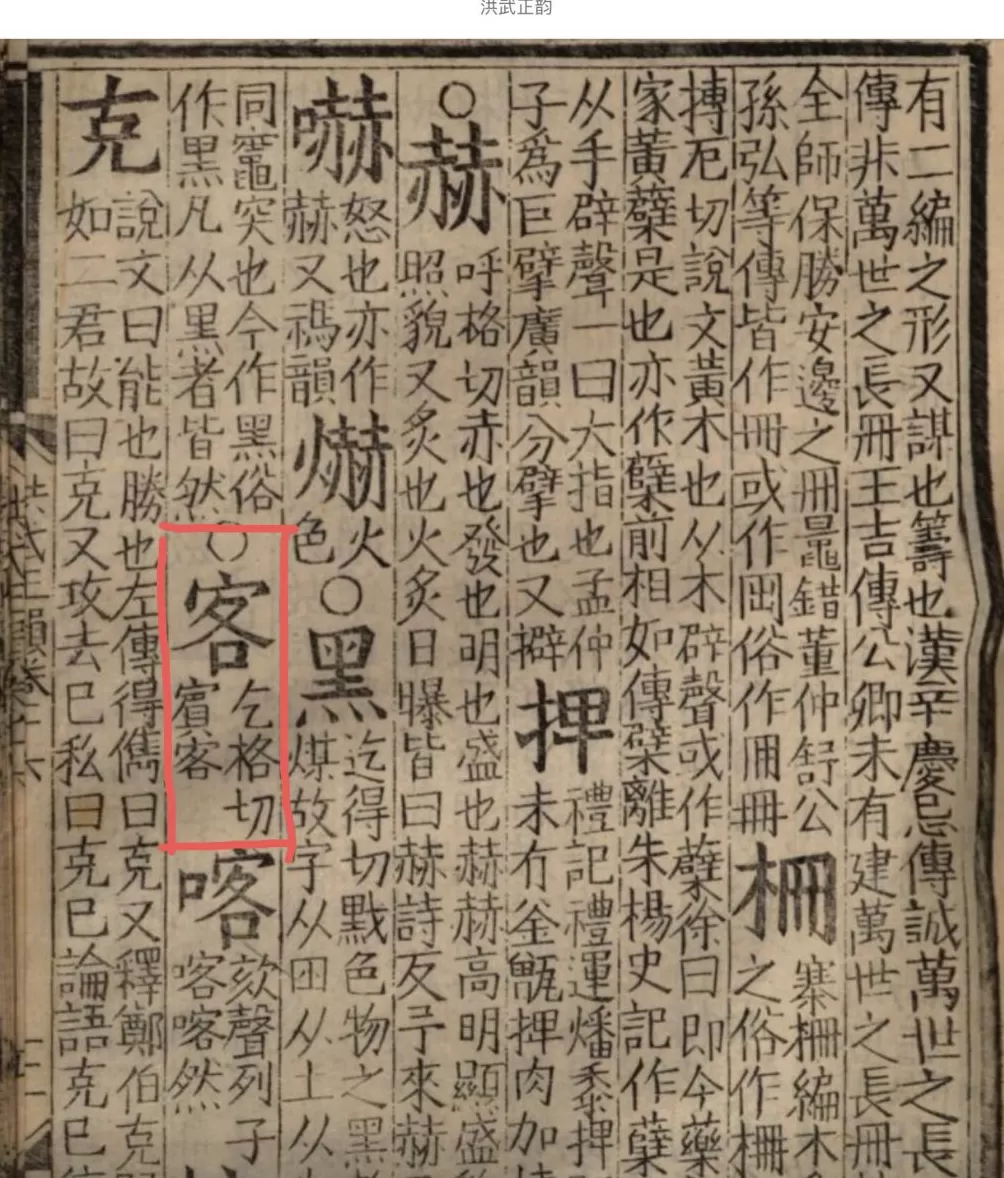 洪武正韵
有二編之形又謀也籌也漢辛慶忌傳誠萬世之長
傳非萬世之長冊王吉傳公卿未有建萬世之長冊
全師保勝安邊之冊鼂錯董仲舒公
孫弘等傳皆作冊或作俗作冊
柵
寨柵編木
之俗作柵
搏厄切說文黃木也从木辟聲或作蘗徐曰即今藥
家黃蘗是也亦作檗前相如傳檗離朱楊史記作蘗
从手辟聲一曰大指也孟仲
子爲巨擘廣韻分擘也又擗
押
禮記禮運燔黍捭
未有釡甑捭肉加
○赫
呼格切赤也發也明也盛也赫赫高明顯盛
照貌又炙也火炙日曝皆曰赫詩反予來赫
嚇
怒也亦作
赫又禡韻
爀
火
色
○黑
迄得切黓色物之黑
煤故字从囪从土从
同竈突也今作黑俗
作黒凡从黒者皆然
○客
乞格切
賓客
喀
欬聲列子
喀喀然
克
說文曰能也勝也左傳得儁曰克又釋鄭伯克
如二君故曰克又攻去已私曰克已論語克已
洪武正韻卷十六